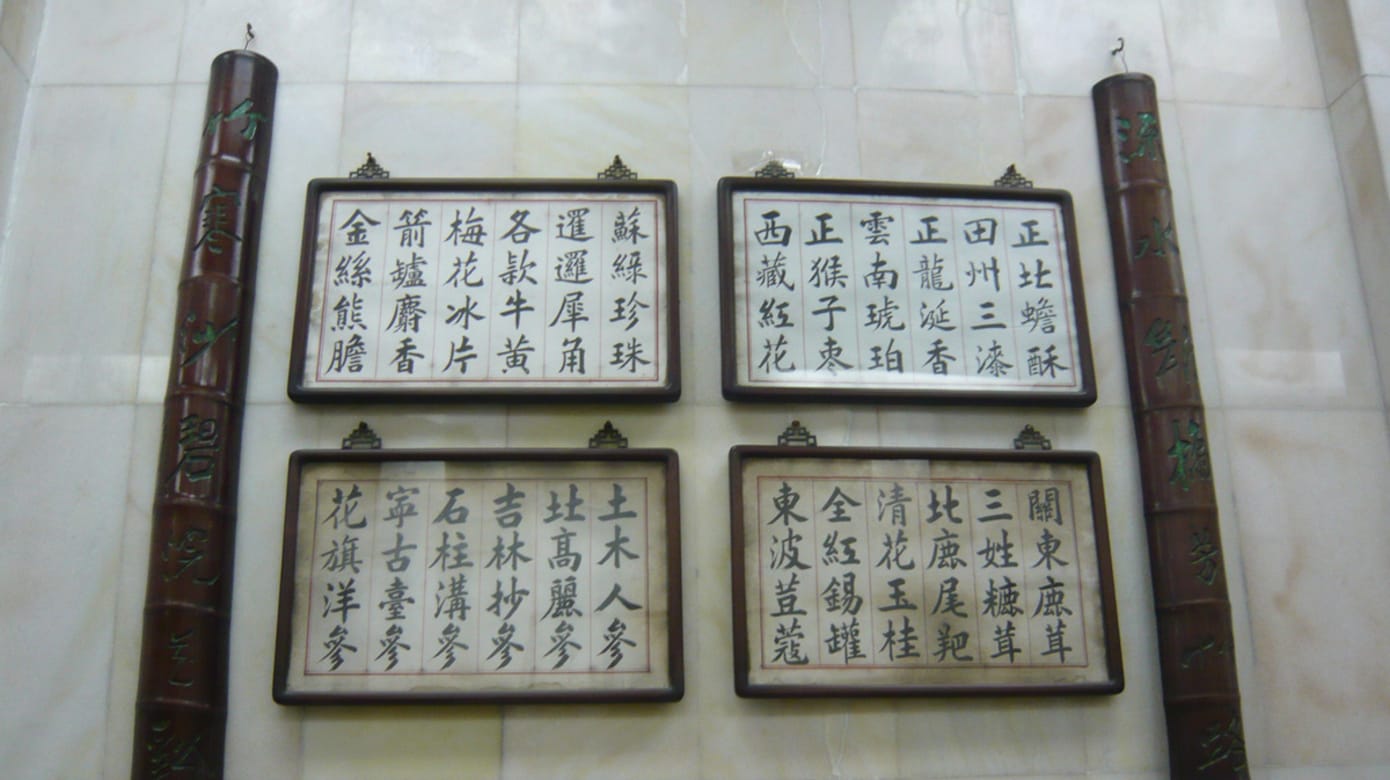 水
橋
芳
正北蟾酥
田州三漆
正龍涎香
雲南琥珀
正猴子枣
西藏紅花
蘇綠珍珠
暹邏犀角
各款牛黃
梅花冰片
箭鑪麝香
金絲熊膽
關東鹿茸
三姓茸
北鹿尾羓
清花玉桂
全紅錫罐
東波荳蔻
土木人參
北高麗參
吉林抄參
石柱溝參
寧古臺參
花旗洋參
竹寒沙碧浣